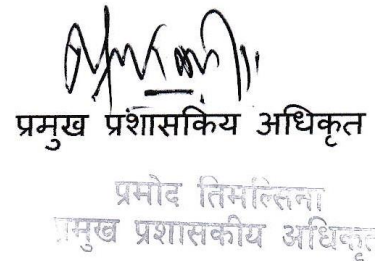 प्रमुख प्रशासकिय अधिकृत
प्रमोद तिमल्सिना
प्रमुख प्रशासकीय अधिकृत